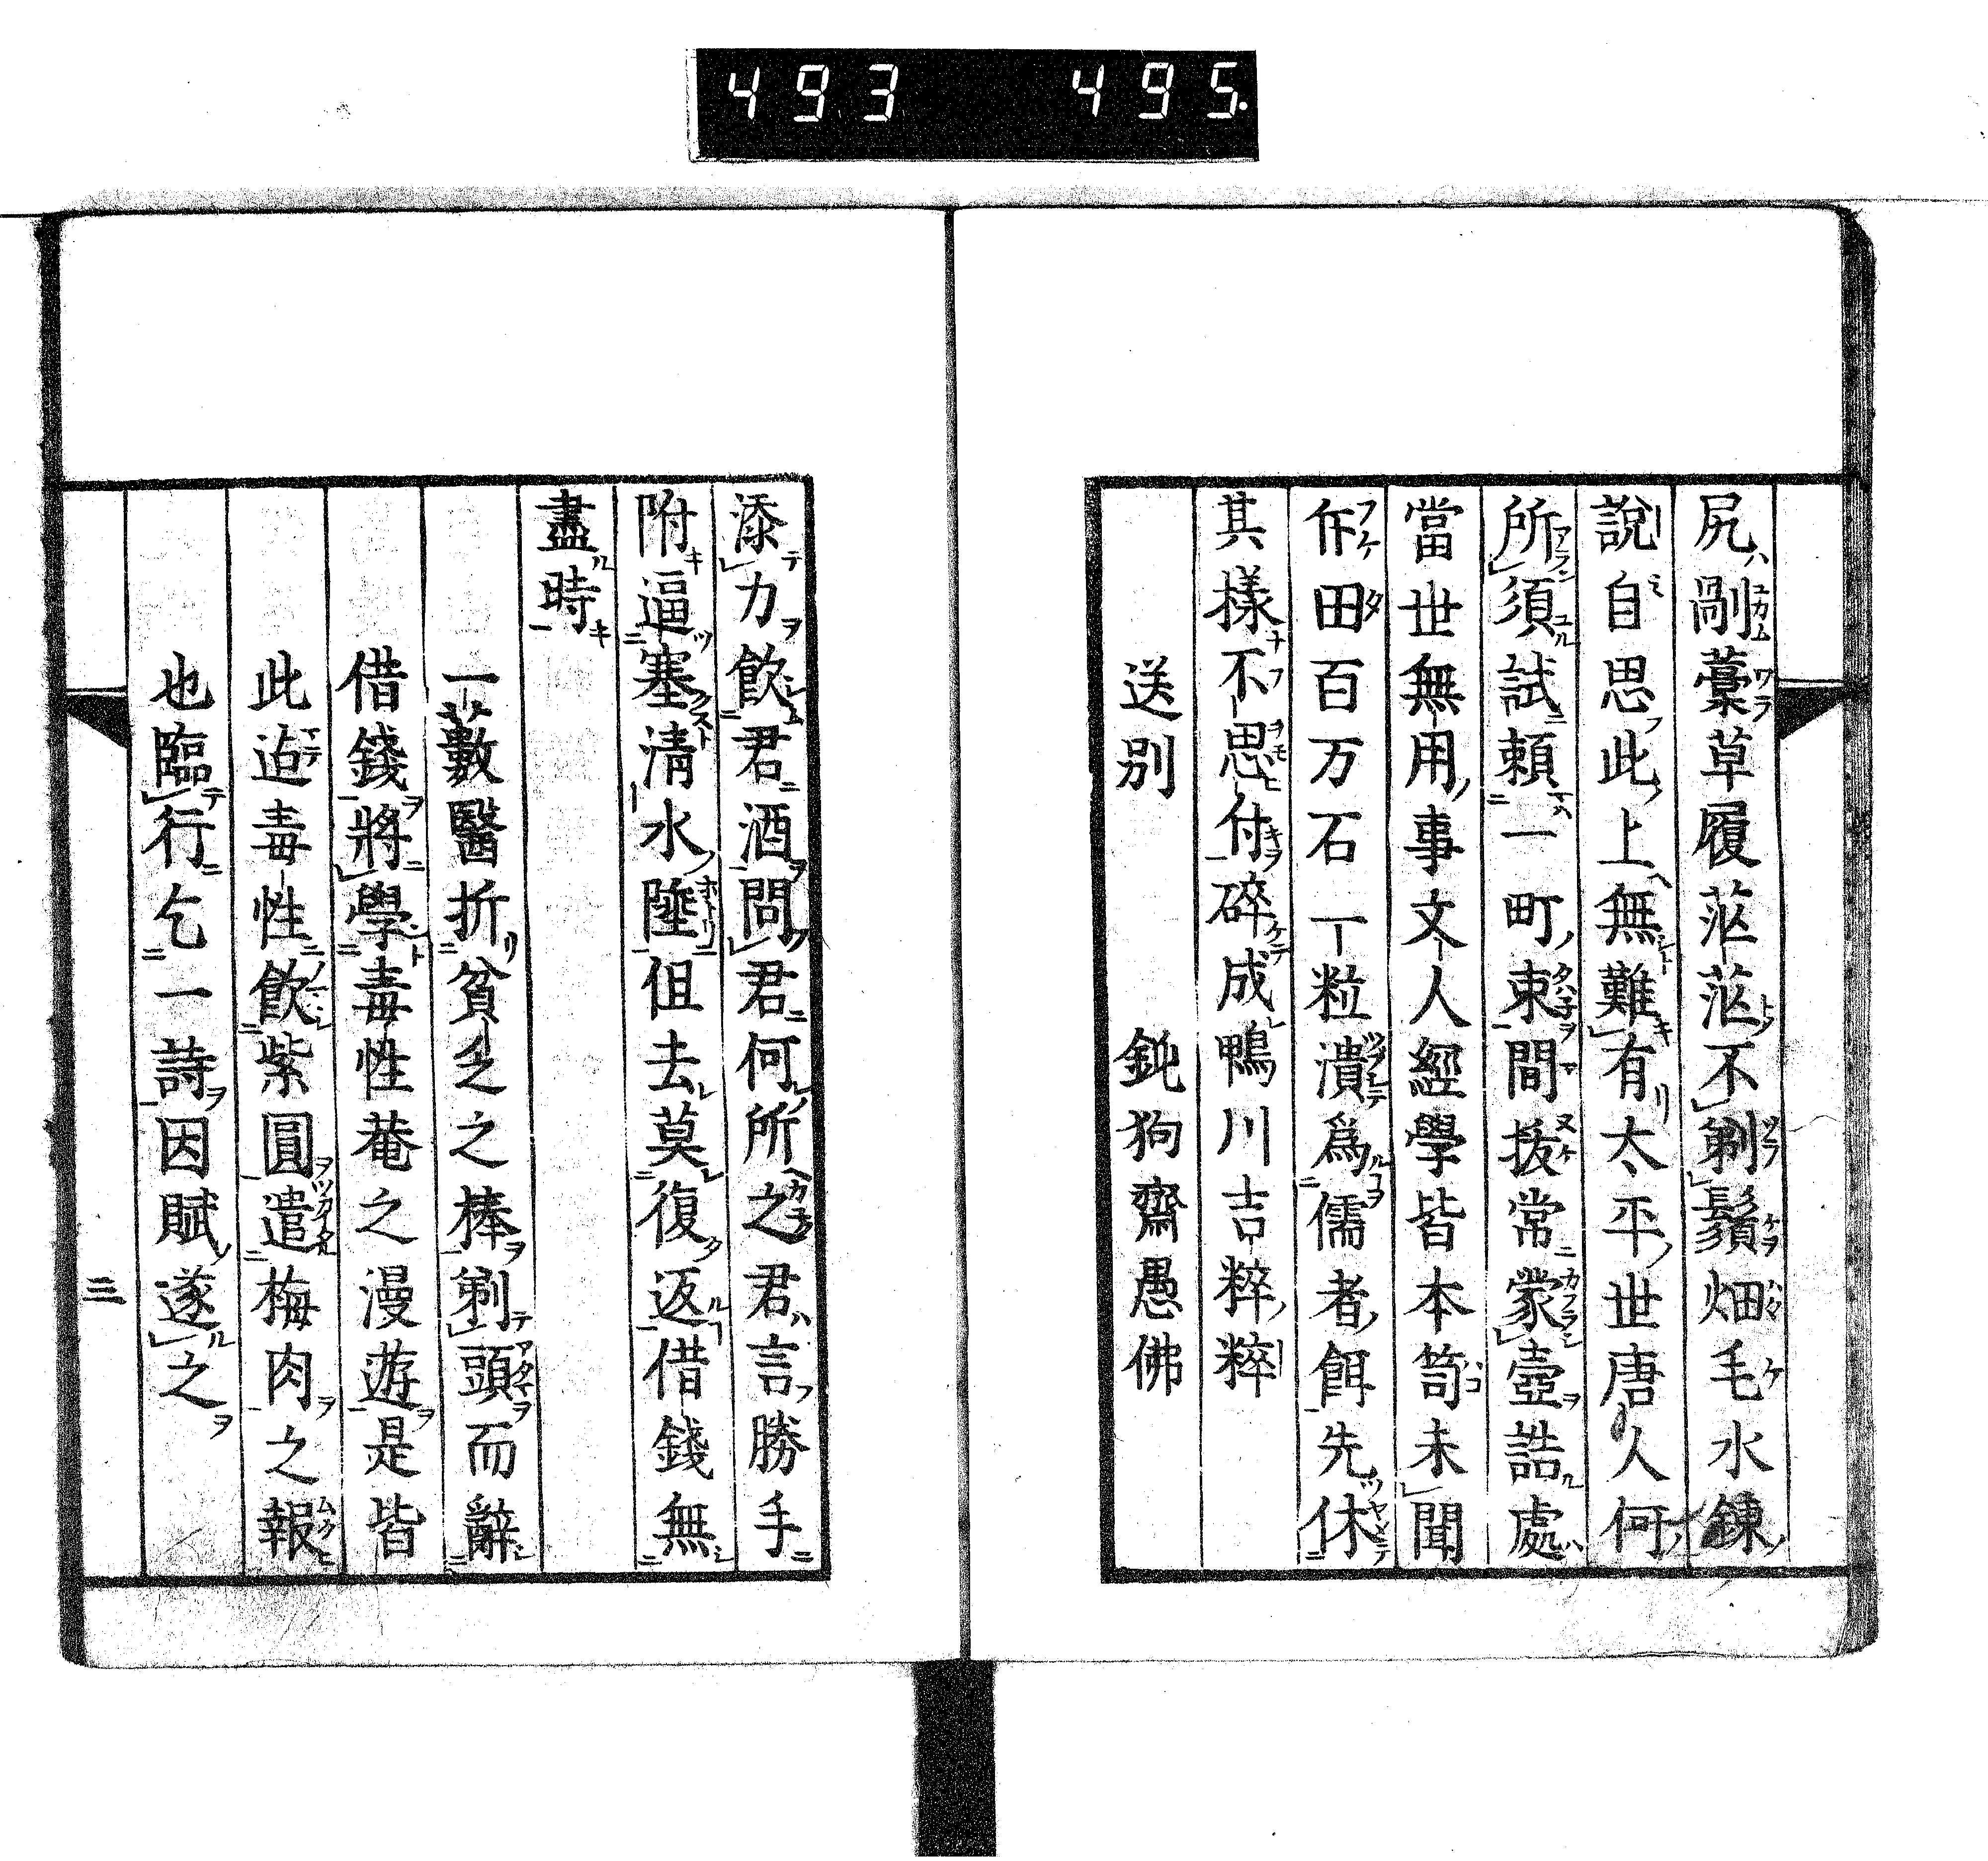 493 495
尻剮藁草履茫茫不剃鬚畑毛水錬
說自思此上無難有太平世唐人何
所須試頼一町束間拔常蒙壺誥處
當世無用事文人經學皆本笥未聞
作田百万石一粒潰爲儒者餌先休
其樣不思付碎成鴨川吉粹粹
送別 鈍狗齋愚佛
添力飲君酒問君何所之君言勝手
附逼塞清水陲但去莫復返借錢無
盡時
一藪醫折貧乏之棒剃頭而辭
借錢將學毒性菴之漫遊是皆
此迨毒性飲紫圓遣梅肉之報
也臨行乞一詩因賦遂之
三